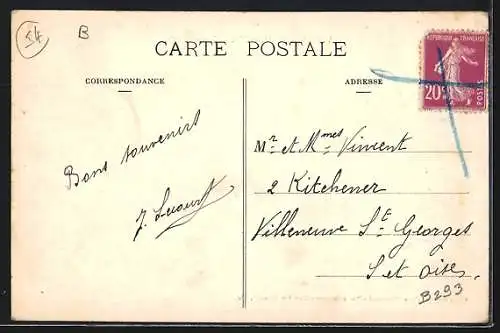 54
B
CARTE POSTALE
CORRESPONDANCE
ADRESSE
REPUBLIQUE FRANÇAISE
20c
POSTES
Bons souvenirs
Mr et Mmes Vincent
2 Kitchener
Villeneuve St Georges
S et Oise.
B293